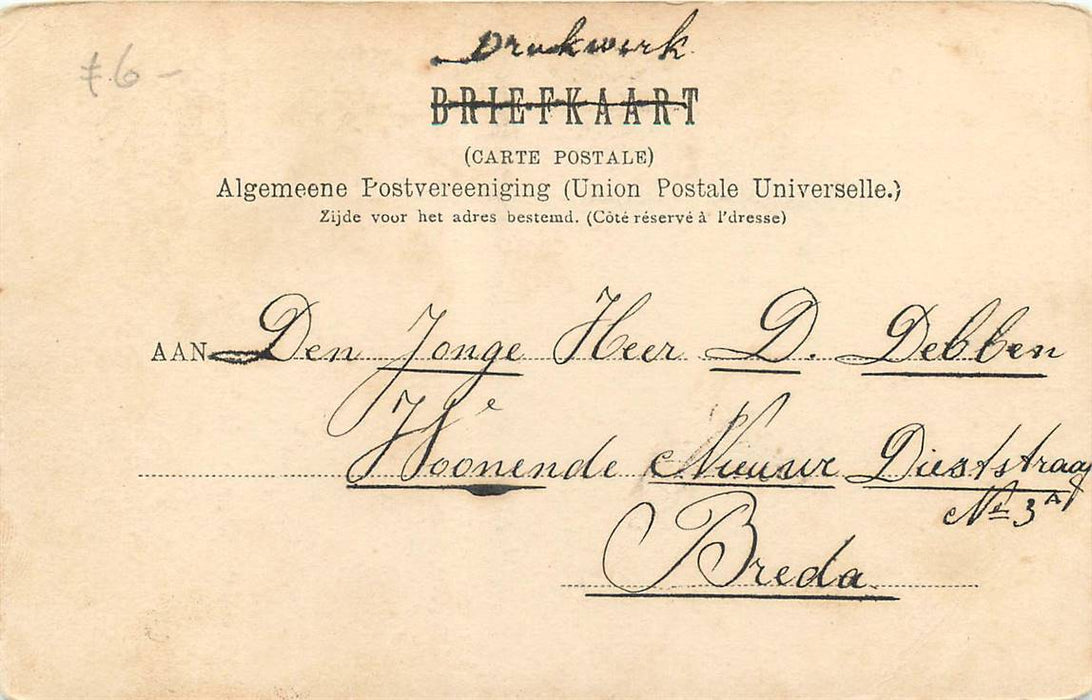 Drukwerk
f 6 -
BRIEFKAART
(CARTE POSTALE)
Algemeene Postvereeniging (Union Postale Universelle.)
Zijde voor het adres bestemd. (Côté réservé à l'dresse)
AAN Den Jonge Heer D. Debben
Woonende Nieuwe Dieststraat
No 3A
Breda